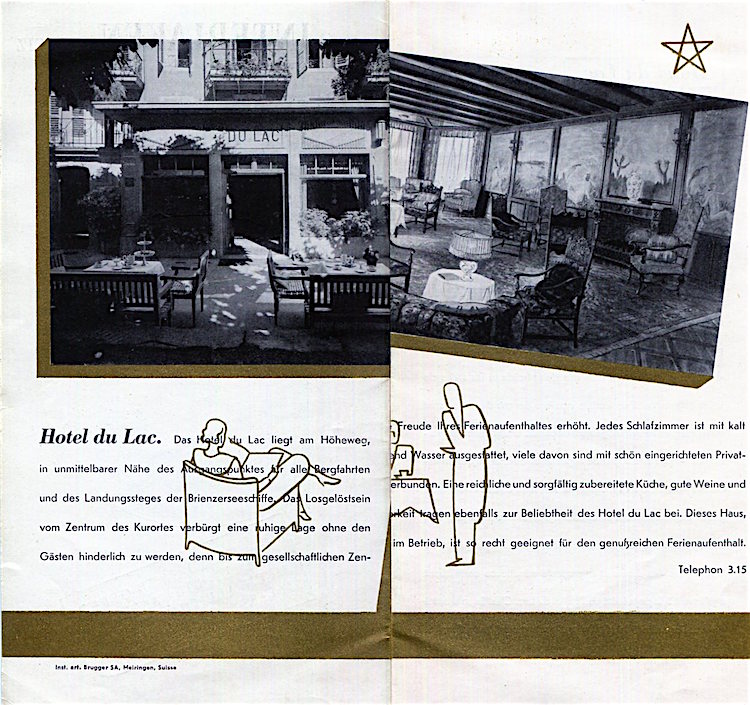 DU LAC
Hotel du Lac. Das Hotel du Lac liegt am Höheweg,
in unmittelbarer Nähe des Ausgangspunktes für alle Bergfahrten
und des Landungssteges der Brienzerseeschiffe. Das Losgelöstsein
vom Zentrum des Kurortes verbürgt eine ruhige Lage ohne den
Gästen hinderlich zu werden, denn bis zum gesellschaftlichen Zen-
Freude Ihres Ferienaufenthaltes erhöht. Jedes Schlafzimmer ist mit kalt
nd Wasser ausgestattet, viele davon sind mit schön eingerichteten Privat-
erbunden. Eine reichliche und sorgfältig zubereitete Küche, gute Weine und
rkeit tragen ebenfalls zur Beliebtheit des Hotel du Lac bei. Dieses Haus,
im Betrieb, ist so recht geeignet für den genußreichen Ferienaufenthalt.
Telephon 3.15
Inst. art. Brugger SA, Meiringen, Suisse